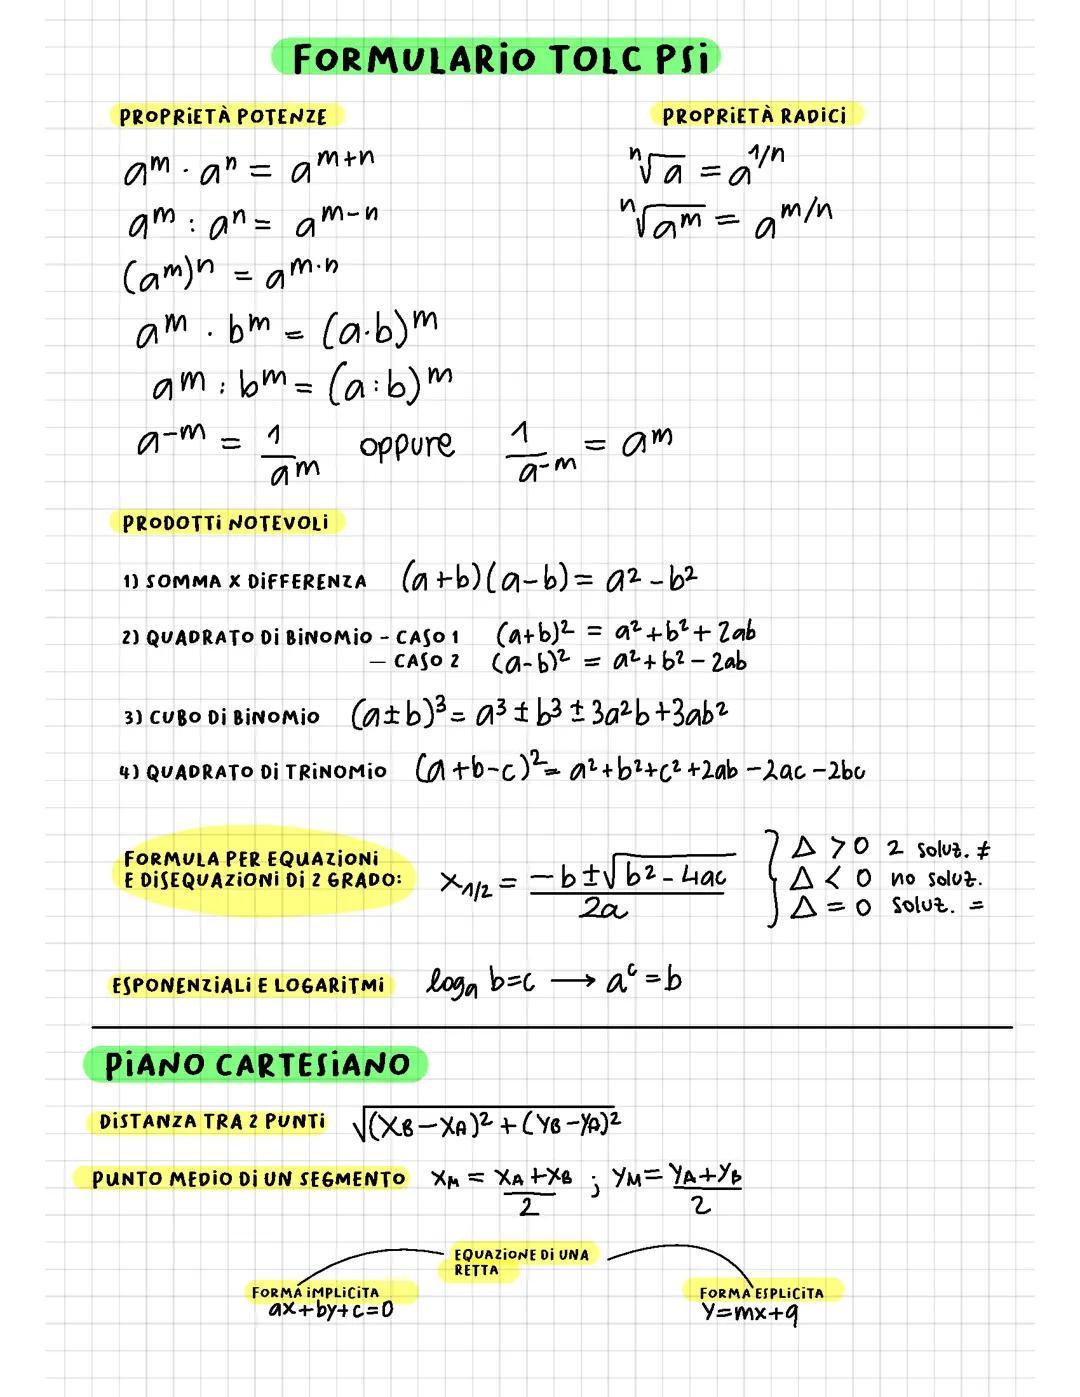 FORMULARiO TOLC PSi
PROPRiETÀ POTENZE
PROPRiETÀ RADiCi
aᵐ · aⁿ = aᵐ⁺ⁿ
ⁿ√a = a^1/n
aᵐ : aⁿ = aᵐ⁻ⁿ
ⁿ√aᵐ = a^m/n
(aᵐ)ⁿ = a^m·n
aᵐ · bᵐ = (a·b)ᵐ
aᵐ : bᵐ = (a:b)ᵐ
a⁻ᵐ = 1/aᵐ oppure 1/a⁻ᵐ = aᵐ
PRODOTTi NOTEVOLi
1) SOMMA X DiFFERENZA (a+b)(a-b) = a² - b²
2) QUADRATO Di BiNOMiO - CASO 1 (a+b)² = a²+b²+2ab
- CASO 2 (a-b)² = a²+b²-2ab
3) CUBO Di BiNOMiO (a±b)³ = a³ ± b³ ± 3a²b+3ab²
4) QUADRATO Di TRiNOMiO (a+b-c)² = a²+b²+c²+2ab-2ac-2bc
FORMULA PER EQUAZiONi
E DiSEQUAZiONi Di 2 GRADO:
x₁/₂ = (-b±√(b²-4ac))/2a
Δ > 0 2 soluz. ≠
Δ < 0 no soluz.
Δ = 0 soluz. =
ESPONENZiALi E LOGARiTMi logₐ b=c → aᶜ=b
PiANO CARTESiANO
DiSTANZA TRA 2 PUNTi √((XB-XA)²+(YB-YA)²)
PUNTO MEDiO Di UN SEGMENTO XM = (XA+XB)/2 ; YM = (YA+YB)/2
EQUAZiONE Di UNA
RETTA
FORMA iMPLiCiTA
ax+by+c=0
FORMA ESPLiCiTA
Y=mx+q